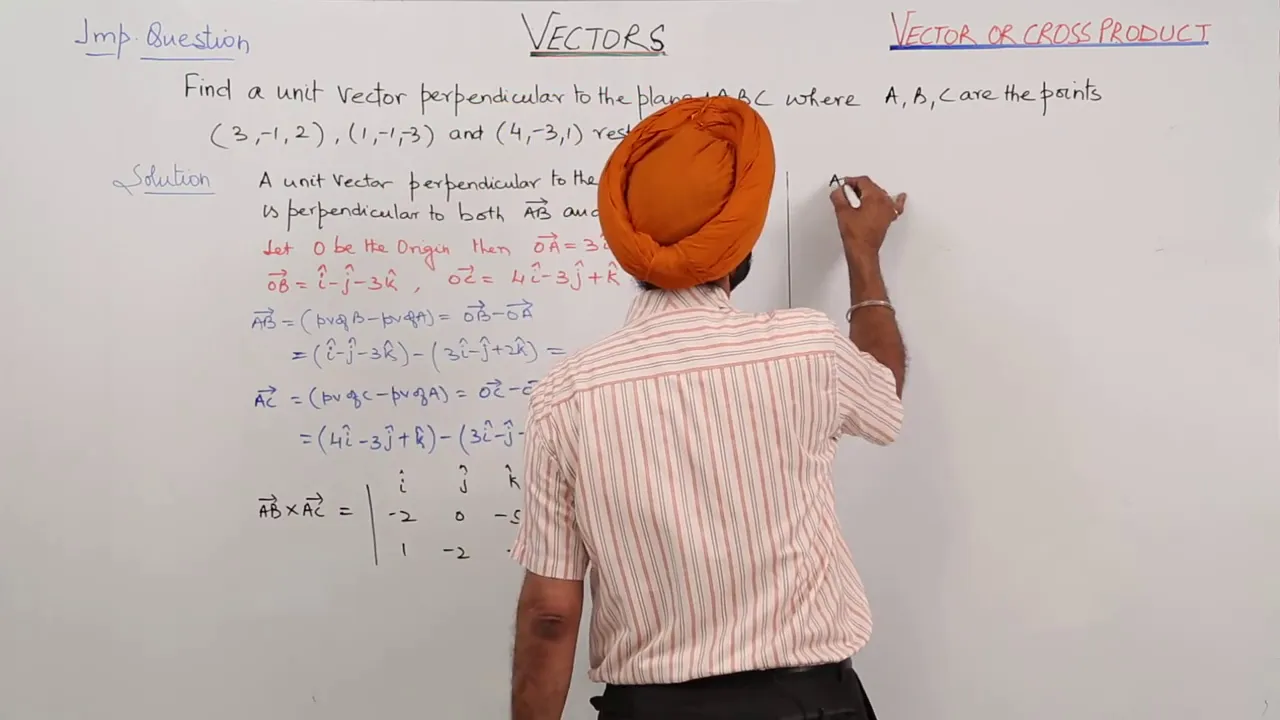 Imp. Question
VECTORS
VECTOR OR CROSS PRODUCT
Find a unit vector perpendicular to the plane ABC where A, B, C are the points
(3, -1, 2), (1, -1, -3) and (4, -3, 1)
Solution
A unit vector perpendicular to the
is perpendicular to both \overrightarrow{AB} and
Let O be the Origin then \overrightarrow{OA} = 3
\overrightarrow{OB} = î - ĵ - 3k̂, \overrightarrow{OC} = 4î - 3ĵ + k̂
\overrightarrow{AB} = (pv of B - pv of A) = \overrightarrow{OB} - \overrightarrow{OA}
= (î - ĵ - 3k̂) - (3î - ĵ + 2k̂) =
\overrightarrow{AC} = (pv of C - pv of A) = \overrightarrow{OC} -
= (4î - 3ĵ + k̂) - (3î - ĵ
î ĵ k̂
\overrightarrow{AB} × \overrightarrow{AC} = | -2 0 -5
1 -2
A